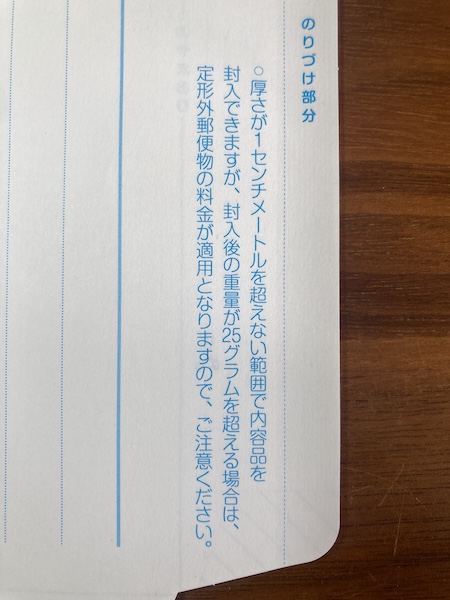 のりづけ部分
○厚さが1センチメートルを超えない範囲で内容品を
封入できますが、封入後の重量が25グラムを超える場合は、
定形外郵便物の料金が適用となりますので、ご注意ください。